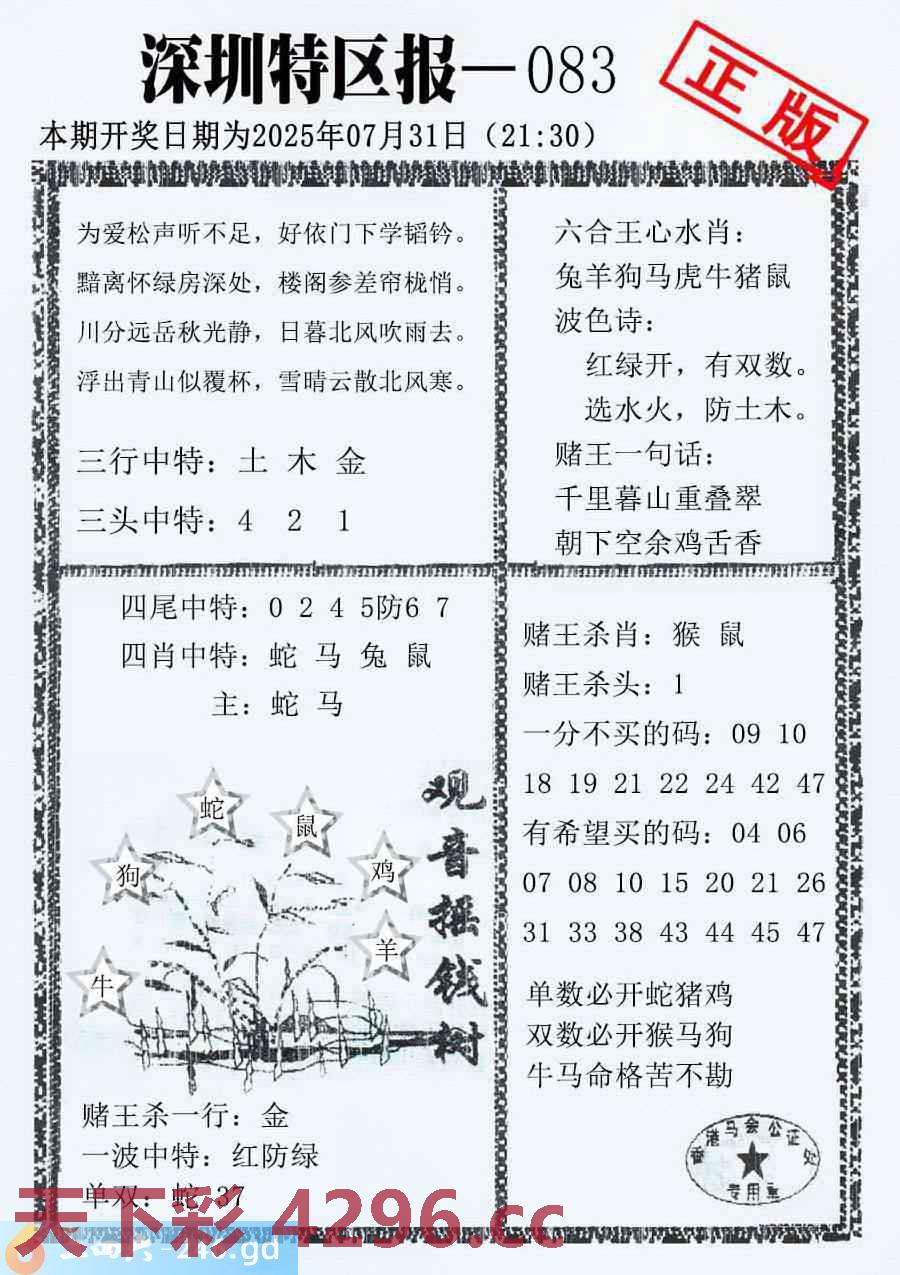 深圳特区报—083
正版
本期开奖日期为2025年07月31日（21:30）
为爱松声听不足，好依门下学韬钤。
黯离怀绿房深处，楼阁参差帘栊悄。
川分远岳秋光静，日暮北风吹雨去。
浮出青山似覆杯，雪晴云散北风寒。
三行中特：土 木 金
三头中特：4 2 1
六合王心水肖：
兔羊狗马虎牛猪鼠
波色诗：
红绿开，有双数。
选水火，防土木。
赌王一句话：
千里暮山重叠翠
朝下空余鸡舌香
四尾中特：0 2 4 5防6 7
四肖中特：蛇 马 兔 鼠
主：蛇 马
观音摇钱树
蛇
鼠
狗
鸡
羊
牛
赌王杀一行：金
一波中特：红防绿
单双：蛇 37
赌王杀肖：猴 鼠
赌王杀头：1
一分不买的码：09 10
18 19 21 22 24 42 47
有希望买的码：04 06
07 08 10 15 20 21 26
31 33 38 43 44 45 47
单数必开蛇猪鸡
双数必开猴马狗
牛马命格苦不勘
香港马会公证处
专用章
天下彩 4296.cc
-246.gd